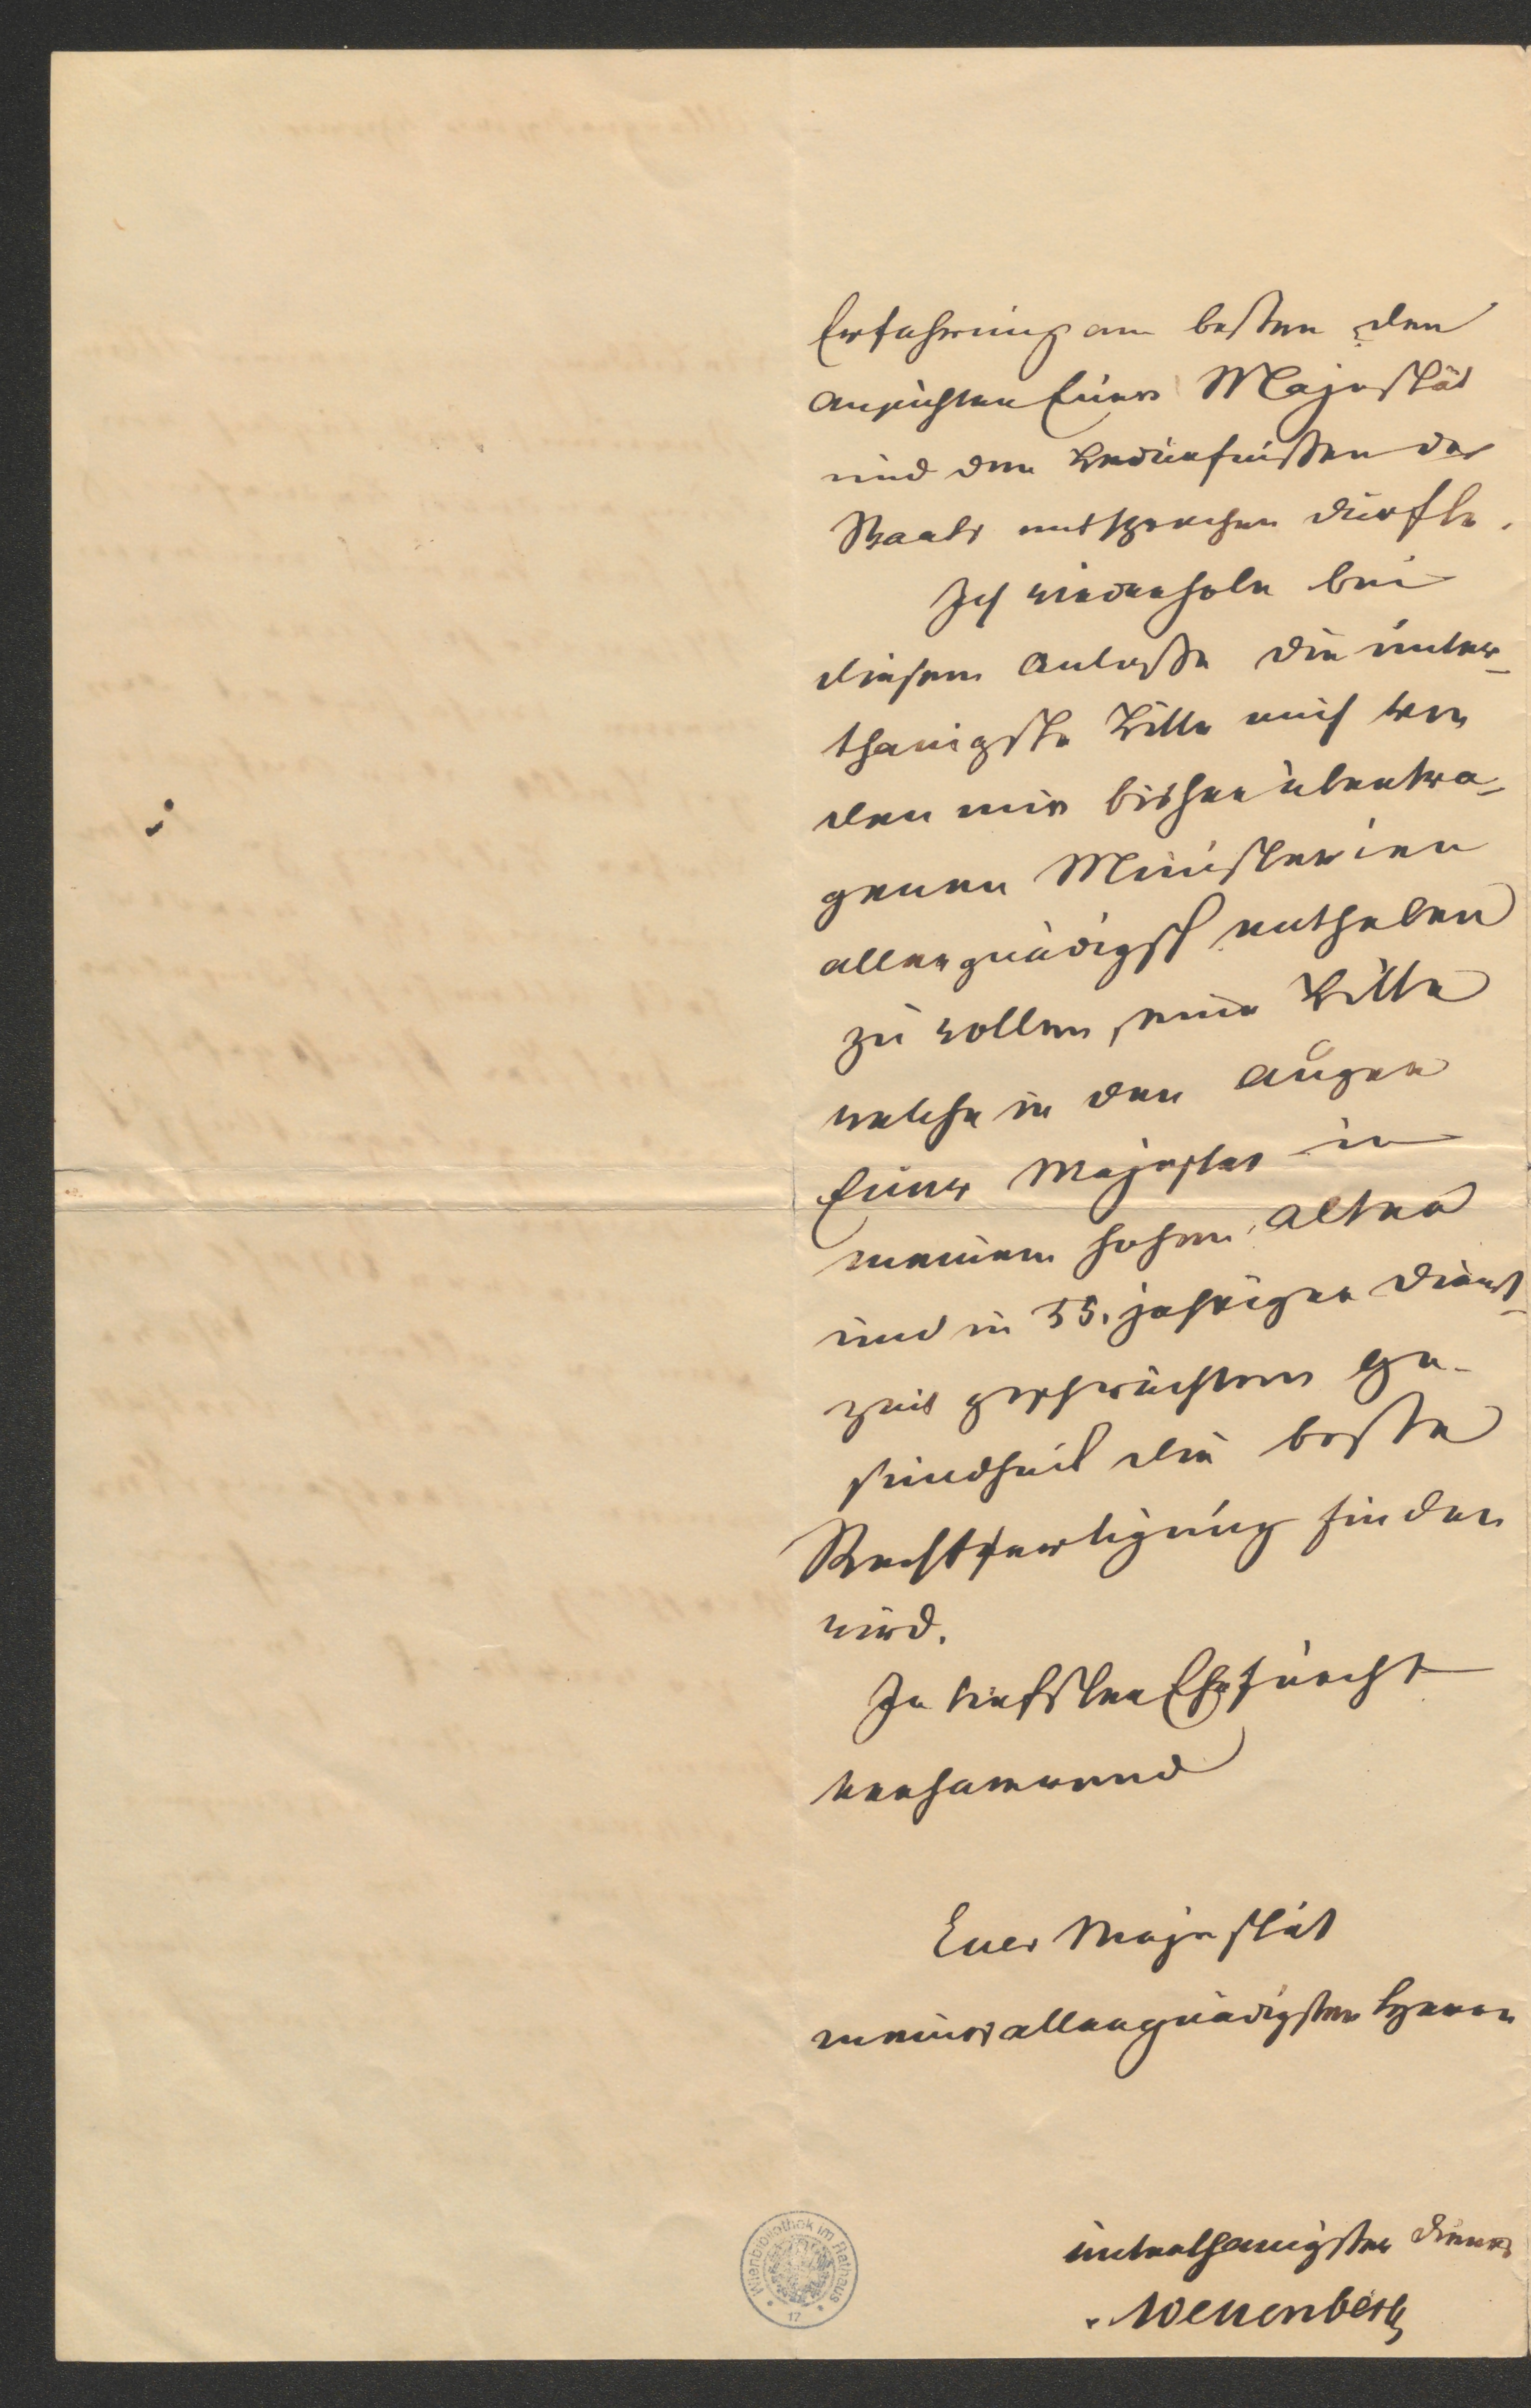 Erfahrung am besten den
Ansichten Eurer Majestät
und den Bedürfnissen des
Staats entsprechen dürfte.
Ich wiederhole bei
diesem Anlasse die unter-
thanigste Bitte mich von
den mir bisher übertra-
genen Ministerien
allergnädigst entheben
zu wollen, eine Bitte
welche in den Augen
Euerer Majestat in
meinem hohen Alter
und in 55. jahriger Dienst-
zeit geschwächten Ge-
sundheit die beste
Rechtfertigung finden
wird.
In tiefster Ehrfurcht
verharrend
Euer Majestät
meines allergnädigsten Herrn
unterthanigster Diener
Wessenberg
Wienbibliothek im Rathaus
17